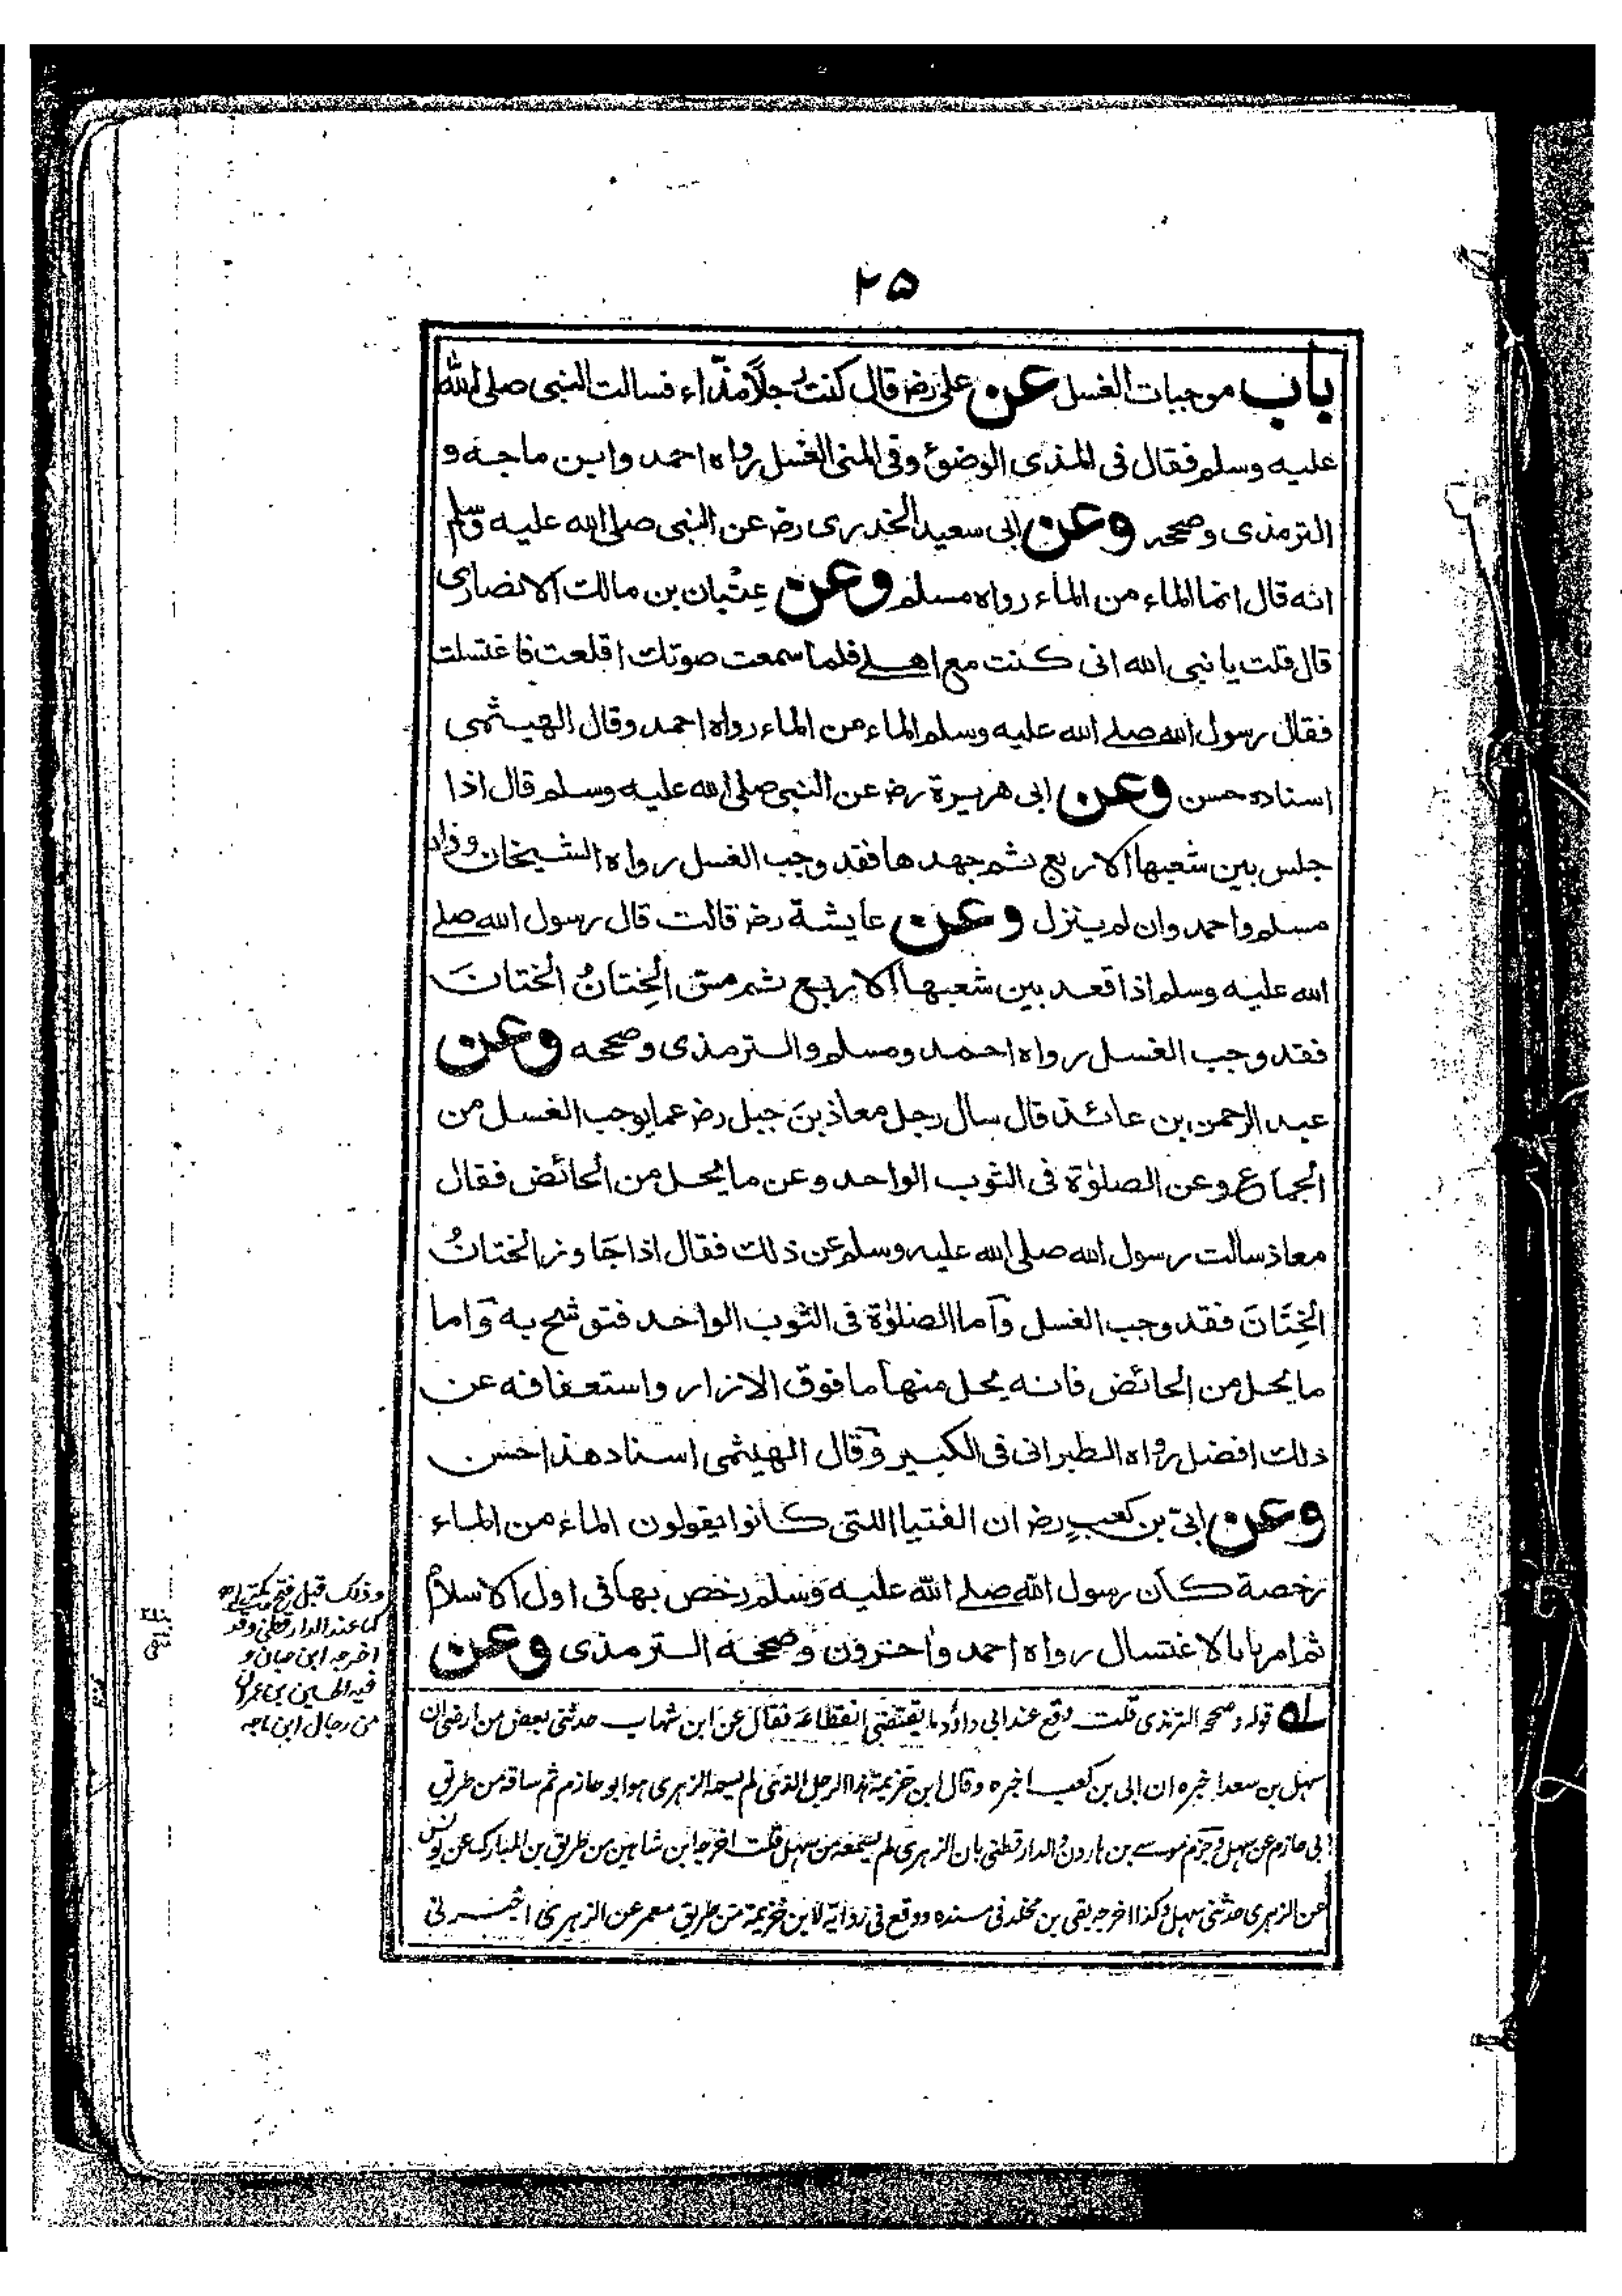 ۲۵
باب موجبات الغسل عن علی رضہ قال کنت رجلاً مذّاء فسالت النبی صلی الله
علیه وسلم فقال فی المذی الوضوء وفی المنی الغسل رواہ احمد وابن ماجة و
الترمذی وصححہ وعن ابی سعید الخدری رضہ عن النبی صلی الله علیه وسلم
انه قال انما الماء من الماء رواہ مسلم وعن عِتْبان بن مالک الانصاری
قال قلت یا نبی الله انی کنت مع اهلی فلما سمعت صوتک اقلعت فاغتسلت
فقال رسول الله صلے الله علیه وسلم الماء من الماء رواہ احمد وقال الهیثمی
اسنادہ حسن وعن ابی هریرة رضہ عن النبی صلی الله علیه وسلم قال اذا
جلس بین شعبها الاربع ثم جهدها فقد وجب الغسل رواہ الشیخان وزاد
مسلم واحمد وان لم ینزل وعن عایشة رضہ قالت قال رسول الله صلے
الله علیه وسلم اذا قعد بین شعبها الاربع ثم مسّ الخِتانُ الختانَ
فقد وجب الغسل رواہ احمد ومسلم والترمذی وصححه وعن
عبد الرحمن بن عائذ قال سال رجل معاذ بنَ جبل رضہ عما یوجب الغسل من
الجماع وعن الصلوٰة فی الثوب الواحد وعن ما یحل من الحائض فقال
معاذ سالت رسول الله صلی الله علیه وسلم عن ذلک فقال اذا جَاوز الختانُ
الخِتَانَ فقد وجب الغسل وآما الصلوٰة فی الثوب الواحد فتوشح به وآما
ما یحل من الحائض فانه یحل منها ما فوق الازار واستعفافه عن
ذلک افضل رواہ الطبرانی فی الکبیر وقال الهیثمی اسناد هذا حسن
وعن ابیّ بن کعبٍ رضہ ان الفتیا اللتی کانوا یقولون الماء من الماء
رخصة کان رسول الله صلے الله علیه وسلم رخص بها فی اول الاسلام
ثم امرنا بالاغتسال رواہ احمد واخرون وصححه الترمذی وعن
وذلک قبل فتح مکة
کما عند الدارقطنی وقد
اخرجه ابن حبان و
فیه الحسین بن عمران
من رجال ابن ماجه
لہ قوله وصححه الترمذی قلت وقع عند ابی داؤد ما یقتضی انقطاعه فقال عن ابن شهاب حدثنی بعض من ارضی ان
سهل بن سعد اخبره ان ابی بن کعب اخبره وقال ابن خزیمة هذا الرجل الذی لم یسمه الزهری هو ابو حازم ثم ساقه من طریق
ابی حازم عن سهل وجزم موسے بن هارون والدارقطنی بان الزهری لم یسمعه من سهل قلت اخرجه ابن شاهین من طریق بن المبارک عن یونس
عن الزهری حدثنی سهل وکذا اخرجه بقی بن مخلد فی مسنده ووقع فی روایة لابن خزیمة من طریق معمر عن الزهری اخبرنی